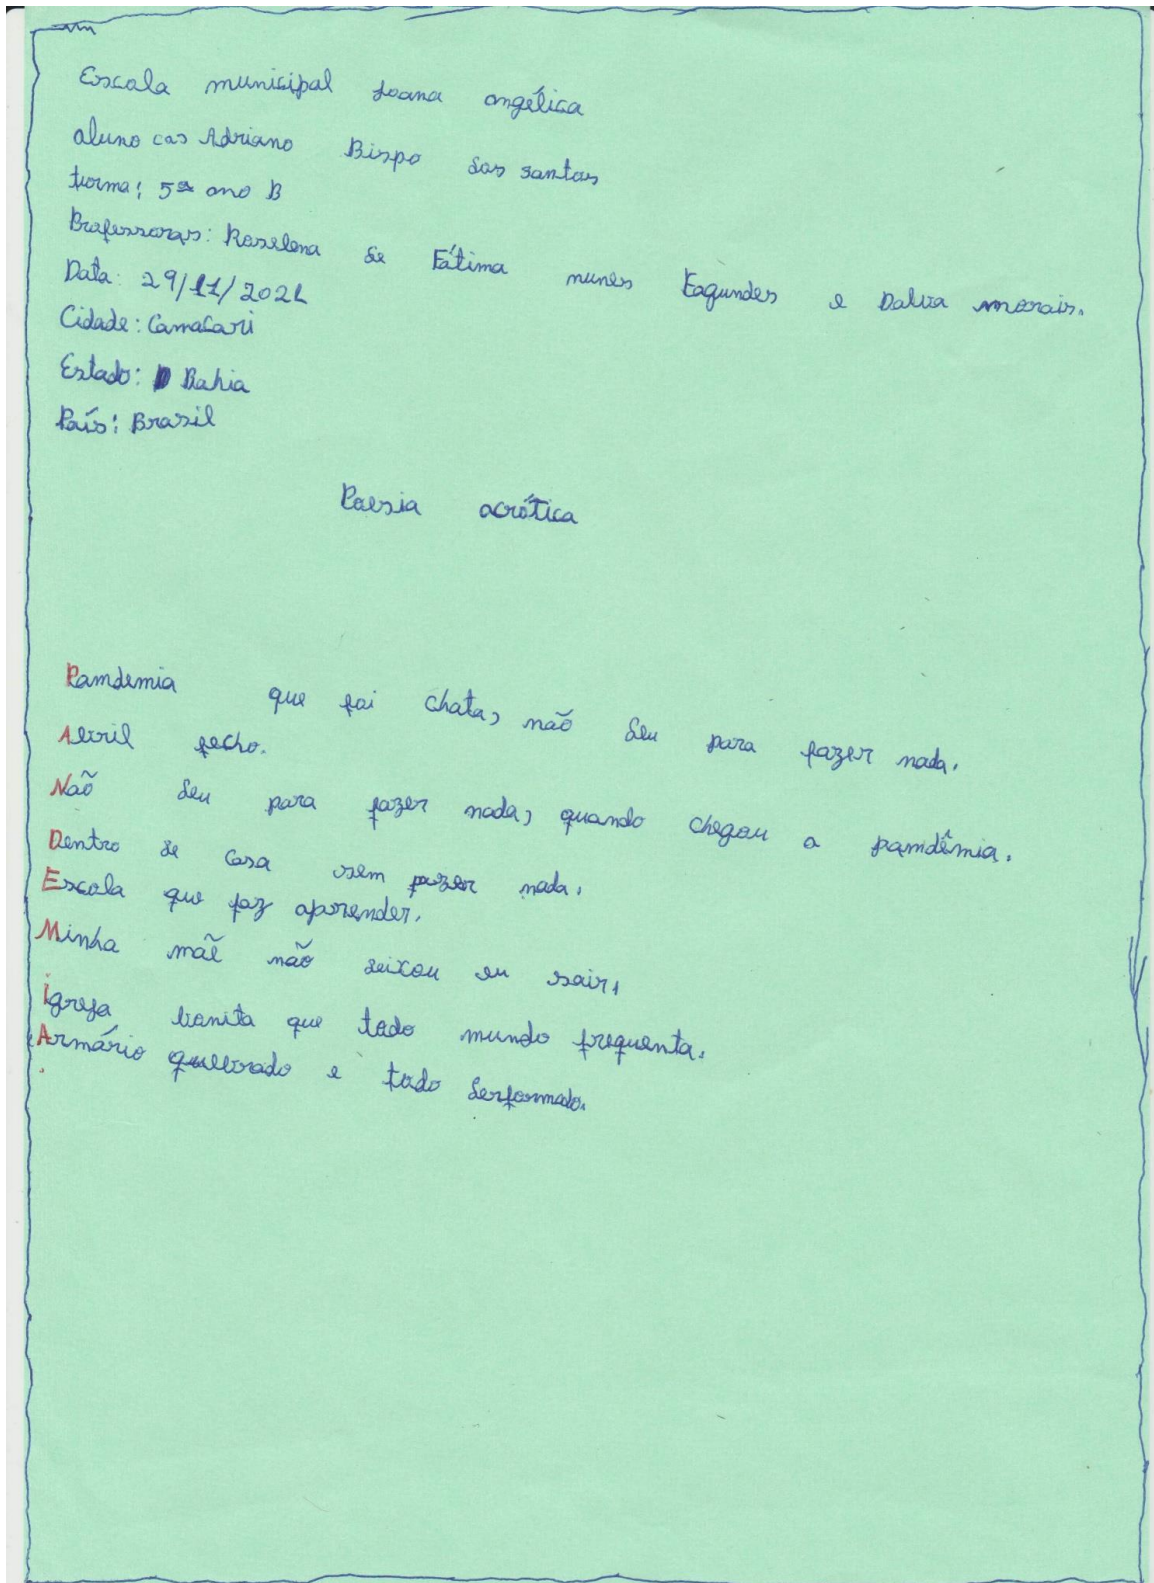 Escola municipal Joana angélica
aluno cas Adriano Bispo dos santos
turma: 5ª ano B
Professoras: Roselena de Fátima nunes Fagundes e Dalva morais.
Data: 29/11/2021
Cidade: Camaçari
Estado: Bahia
País: Brasil
Poesia acrótica
Pamdemia que foi chata, não deu para fazer nada.
Abril fecho.
Não deu para fazer nada, quando chegou a pamdêmia.
Dentro de casa sem fazer nada.
Escola que faz aprender.
Minha mãe não deixou eu sair,
igreja bonita que todo mundo frequenta.
Armário quebrado e todo desformado.